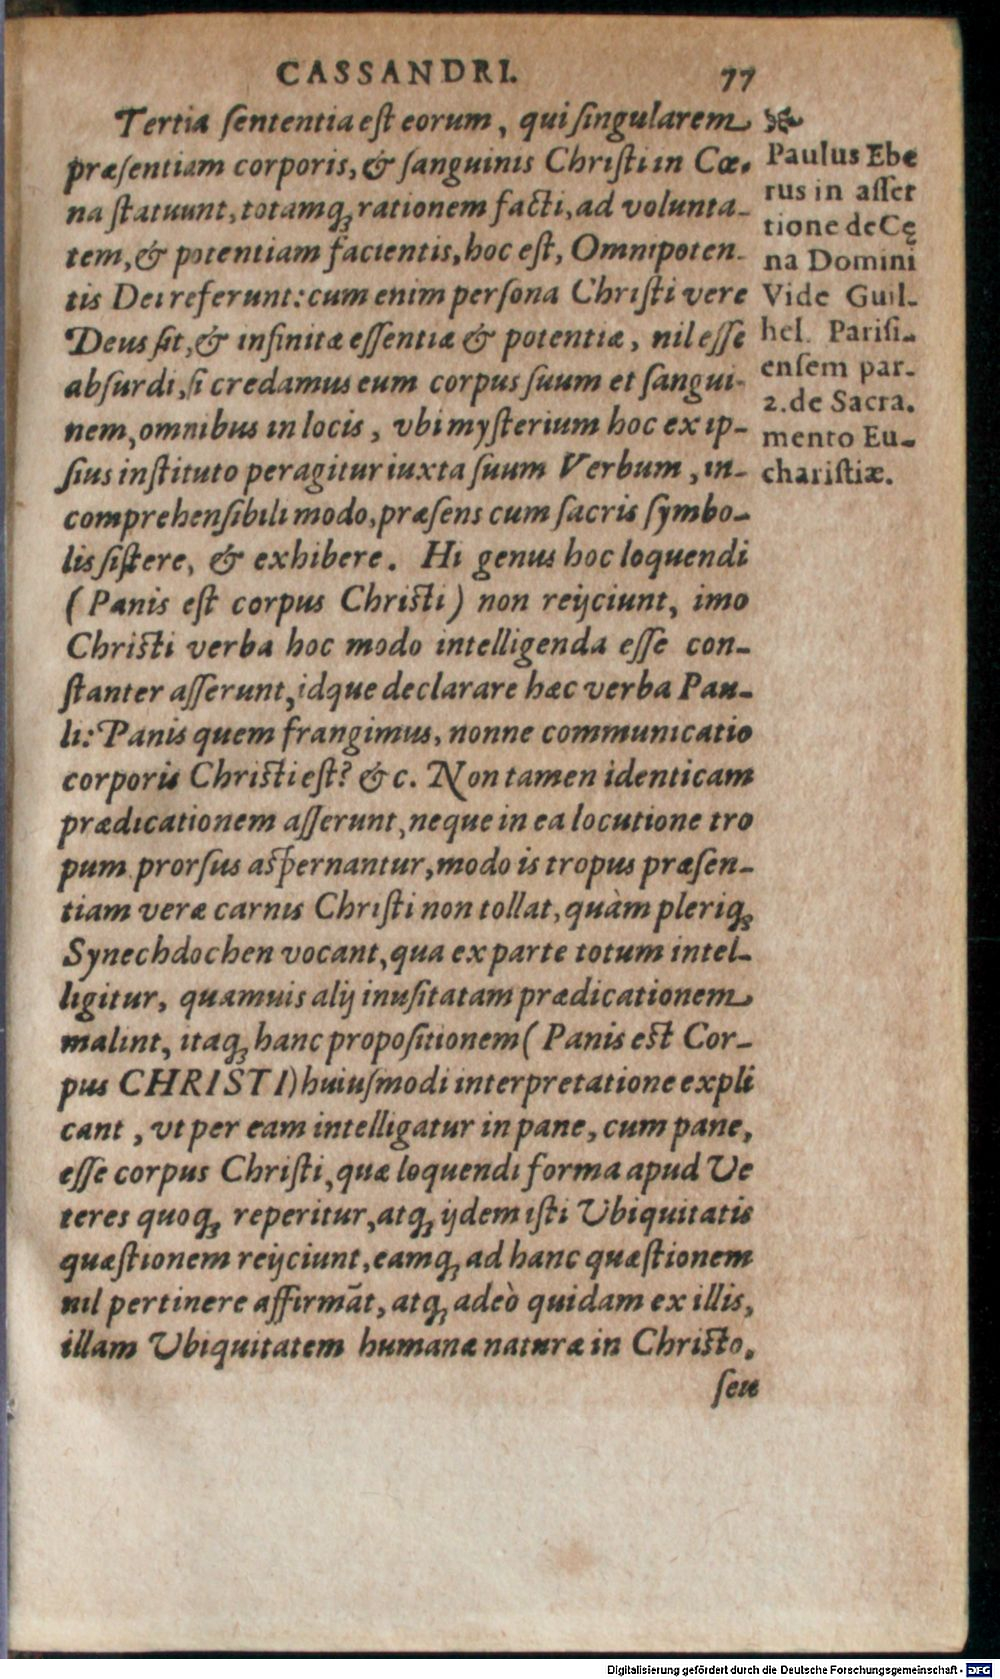 CASSANDRI. 77
Tertia ſententia eſt eorum, qui ſingularem
præſentiam corporis, & ſanguinis Chriſti in Cœ-
na ſtatuunt, totamq́; rationem facti, ad volunta-
tem, & potentiam facientis, hoc eſt, Omnipoten-
tis Dei referunt: cum enim perſona Chriſti vere
Deus ſit, & infinitæ eſſentiæ & potentiæ, nil eſſe
abſurdi, ſi credamus eum corpus ſuum et ſangui-
nem, omnibus in locis, vbi myſterium hoc ex ip-
ſius inſtituto peragitur iuxta ſuum Verbum, in-
comprehenſibili modo, præſens cum ſacris ſymbo-
lis ſiſtere, & exhibere. Hi genus hoc loquendi
(Panis eſt corpus Chriſti) non reijciunt, imo
Chriſti verba hoc modo intelligenda eſſe con-
ſtanter aſſerunt, idque declarare hæc verba Pau-
li: Panis quem frangimus, nonne communicatio
corporis Chriſti eſt? & c. Non tamen identicam
prædicationem aſſerunt, neque in ea locutione tro
pum prorſus aſpernantur, modo is tropus præſen-
tiam veræ carnis Chriſti non tollat, quàm pleriq;
Synechdochen vocant, qua ex parte totum intel-
ligitur, quamuis alij inuſitatam prædicationem
malint, itaq; hanc propoſitionem (Panis eſt Cor-
pus CHRISTI) huiuſmodi interpretatione expli
cant, vt per eam intelligatur in pane, cum pane,
eſſe corpus Chriſti, quæ loquendi forma apud Ve
teres quoq; reperitur, atq; ijdem iſti Ubiquitatis
quæſtionem reijciunt, eamq; ad hanc quæſtionem
nil pertinere affirmāt, atq; adeò quidam ex illis,
illam Ubiquitatem humanæ naturæ in Chriſto,
ſeu
Paulus Ebe
rus in aſſer
tione de Cę
na Domini
Vide Guil-
hel. Pariſi-
enſem par-
2. de Sacra-
mento Eu-
chariſtiæ.
Digitalisierung gefördert durch die Deutsche Forschungsgemeinschaft - DFG